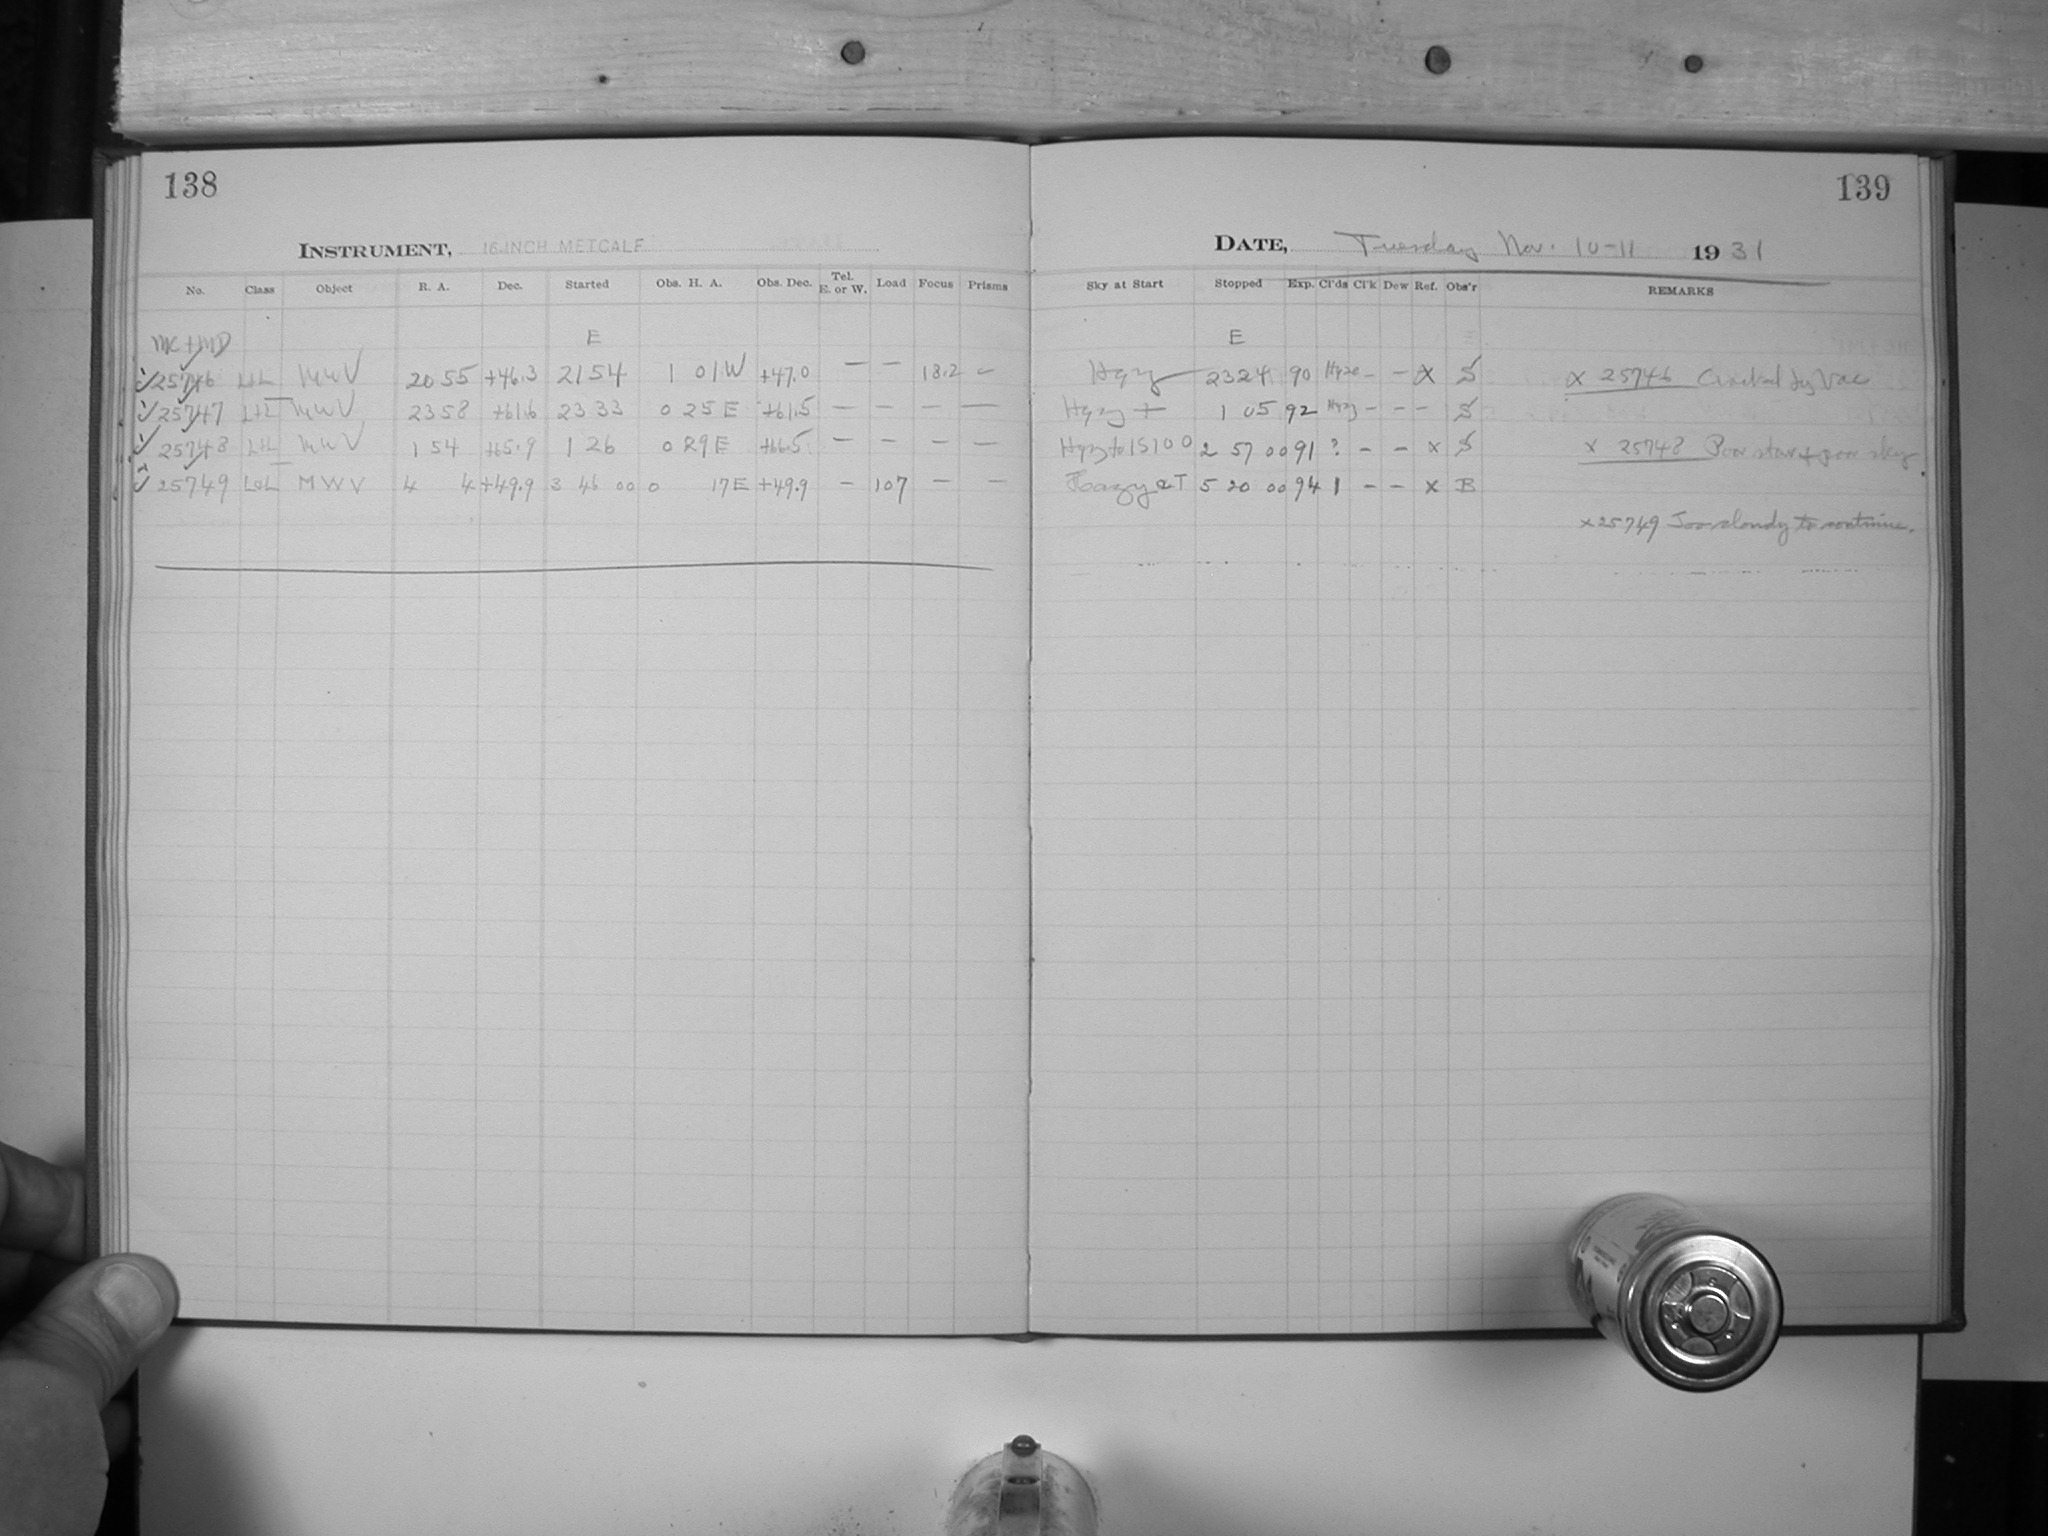 138
INSTRUMENT, 16-INCH METCALF
No. Class Object R. A. Dec. Started Obs. H. A. Obs. Dec. Tel. E. or W. Load Focus Prisms
MC + MD E
25746 L+L MWV 20 55 +46.3 21 54 1 01 W +47.0 — — 18.2 –
25747 L+L MWV 23 58 +61.6 23 33 0 25 E +61.5 — — — —
25748 L+L MWV 1 54 +65.9 1 26 0 29 E +66.5 — — — —
25749 L+L MWV 4 4 +49.9 3 46 00 0 17 E +49.9 – 107 — —
139
DATE, Tuesday Nov. 10-11 1931
Sky at Start Stopped Exp. Cl'ds Cl'k Dew Ref. Obs'r REMARKS
E
Hazy 23 24 90 Haze – – X S X 25746 Cracked by Vac
Hazy + 1 05 92 Hazy – – – S
Hazy to 1S100 2 57 00 91 ? – – x S x 25748 Poor star + poor sky
Hazy & T 5 20 00 94 1 – – x B
x 25749 Too cloudy to continue.